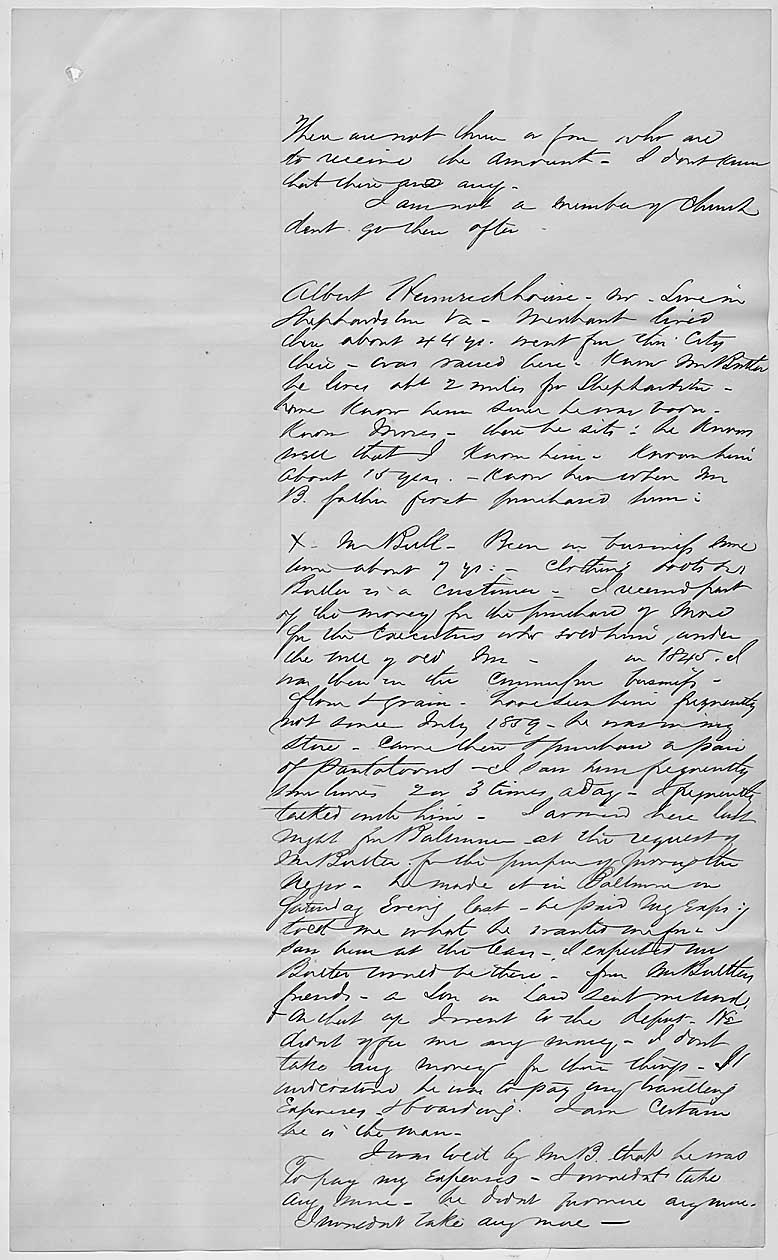 There are not three or four who are
to receive the amount - I dont know
that there are any.
I am not a member of Church
dont go there often.
Albert Heimrickhouse - sw - Live in
Shepherdstown Va - Merchant lived
there about 44 yr. went from this City
there - was raised here - Know Mr Butler
he lives abt 2 miles from Shepherdstn -
have Known him since he was born -
Know Moses - there he sits: he Knows
well that I Know him - Known him
about 15 years. - Know him when Mr
B. father first purchased him:
X - Mr Bull - Been in business some
time about 7 yr: - Clothing boots &c
Butler is a customer - I received part
of the money for the purchase of Moses
for the Executors who sold him, under
the will of old Mr - in 1845. I
was then in the Commission business -
flour & grain - have seen him frequently
not since July 1859 - he was in my
store - came there to purchase a pair
of Pantaloons - I saw him frequently
sometimes 2 or 3 times a day - I frequently
talked with him - I arrived here last
night from Baltimore - at the request of
Mr Butler for the purpose of proving the
Negro - he made it in Baltimore on
Saturday Eveng last - he paid my Exps;
told me what he wanted me for -
saw him at the Cars - I expected Mr
Butler would be there - from Mr Butlers
friends - a Son in Law sent me word,
on that I went to the depot - He
didnt offer me any money - I dont
take any money for these things - I
understand he was to pay my travelling
Expenses & boarding. I am Certain
he is the man -
I was told by Mr B. that he was
To pay my Expenses - I wouldnt take
any more - he didnt promise any more.
I wouldnt take any more -